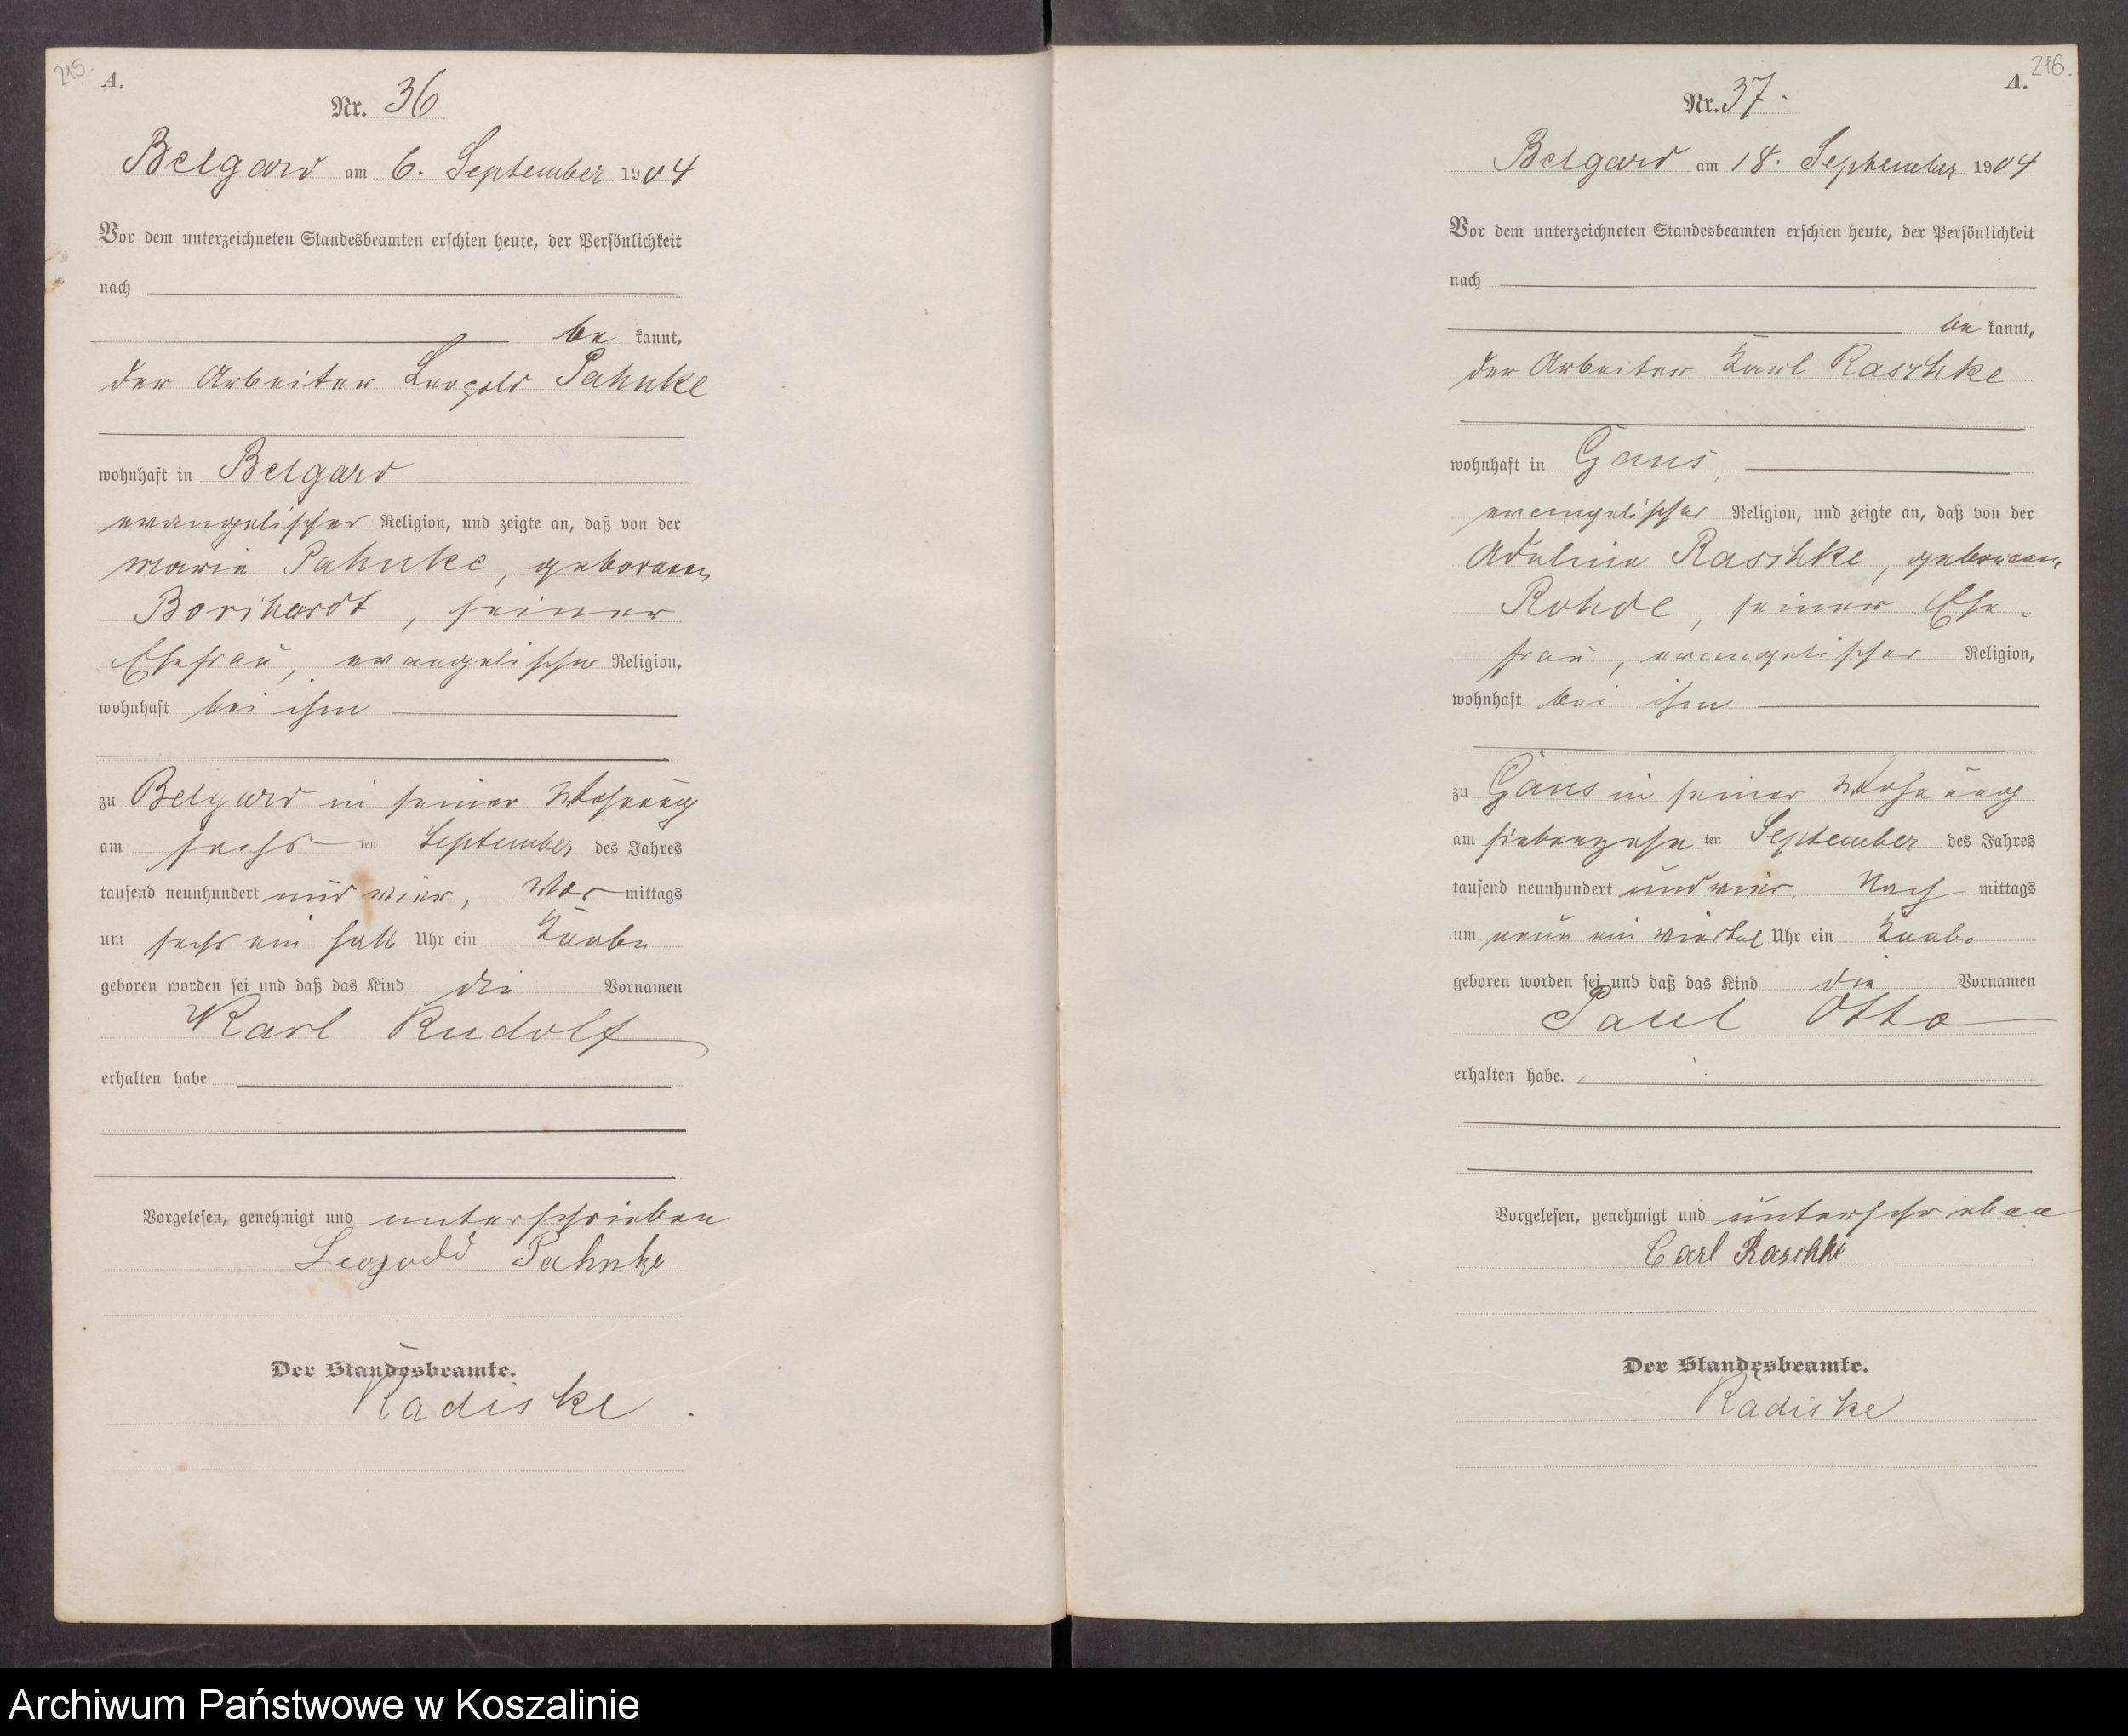 215.
A.
Nr. 36
Belgard am 6. September 1904
Vor dem unterzeichneten Standesbeamten erschien heute, der Persönlichkeit
nach
be kannt,
der Arbeiter Leopold Pahnke
wohnhaft in Belgard
evangelischer Religion, und zeigte an, daß von der
Marie Pahnke, geborenen
Borchardt, seiner
Ehefrau, evangelischer Religion,
wohnhaft bei ihm
zu Belgard in seiner Wohnung
am sechs ten September des Jahres
tausend neunhundert und vier, Vor mittags
um sechs ein halb Uhr ein Knabe
geboren worden sei und daß das Kind die Vornamen
Karl Rudolf
erhalten habe.
Vorgelesen, genehmigt und unterschrieben
Leopold Pahnke
Der Standesbeamte.
Radiske.
216.
A.
Nr. 37.
Belgard am 18. September 1904
Vor dem unterzeichneten Standesbeamten erschien heute, der Persönlichkeit
nach
be kannt,
der Arbeiter Karl Raschke
wohnhaft in Gans,
evangelischer Religion, und zeigte an, daß von der
Adeline Raschke, geborenen
Rohde, seiner Ehe-
frau, evangelischer Religion,
wohnhaft bei ihm
zu Gans in seiner Wohnung
am siebenzehn ten September des Jahres
tausend neunhundert und vier, Nach mittags
um neun ein viertel Uhr ein Knabe
geboren worden sei und daß das Kind die Vornamen
Paul Otto
erhalten habe.
Vorgelesen, genehmigt und unterschrieben
Carl Raschke
Der Standesbeamte.
Radiske
Archiwum Państwowe w Koszalinie